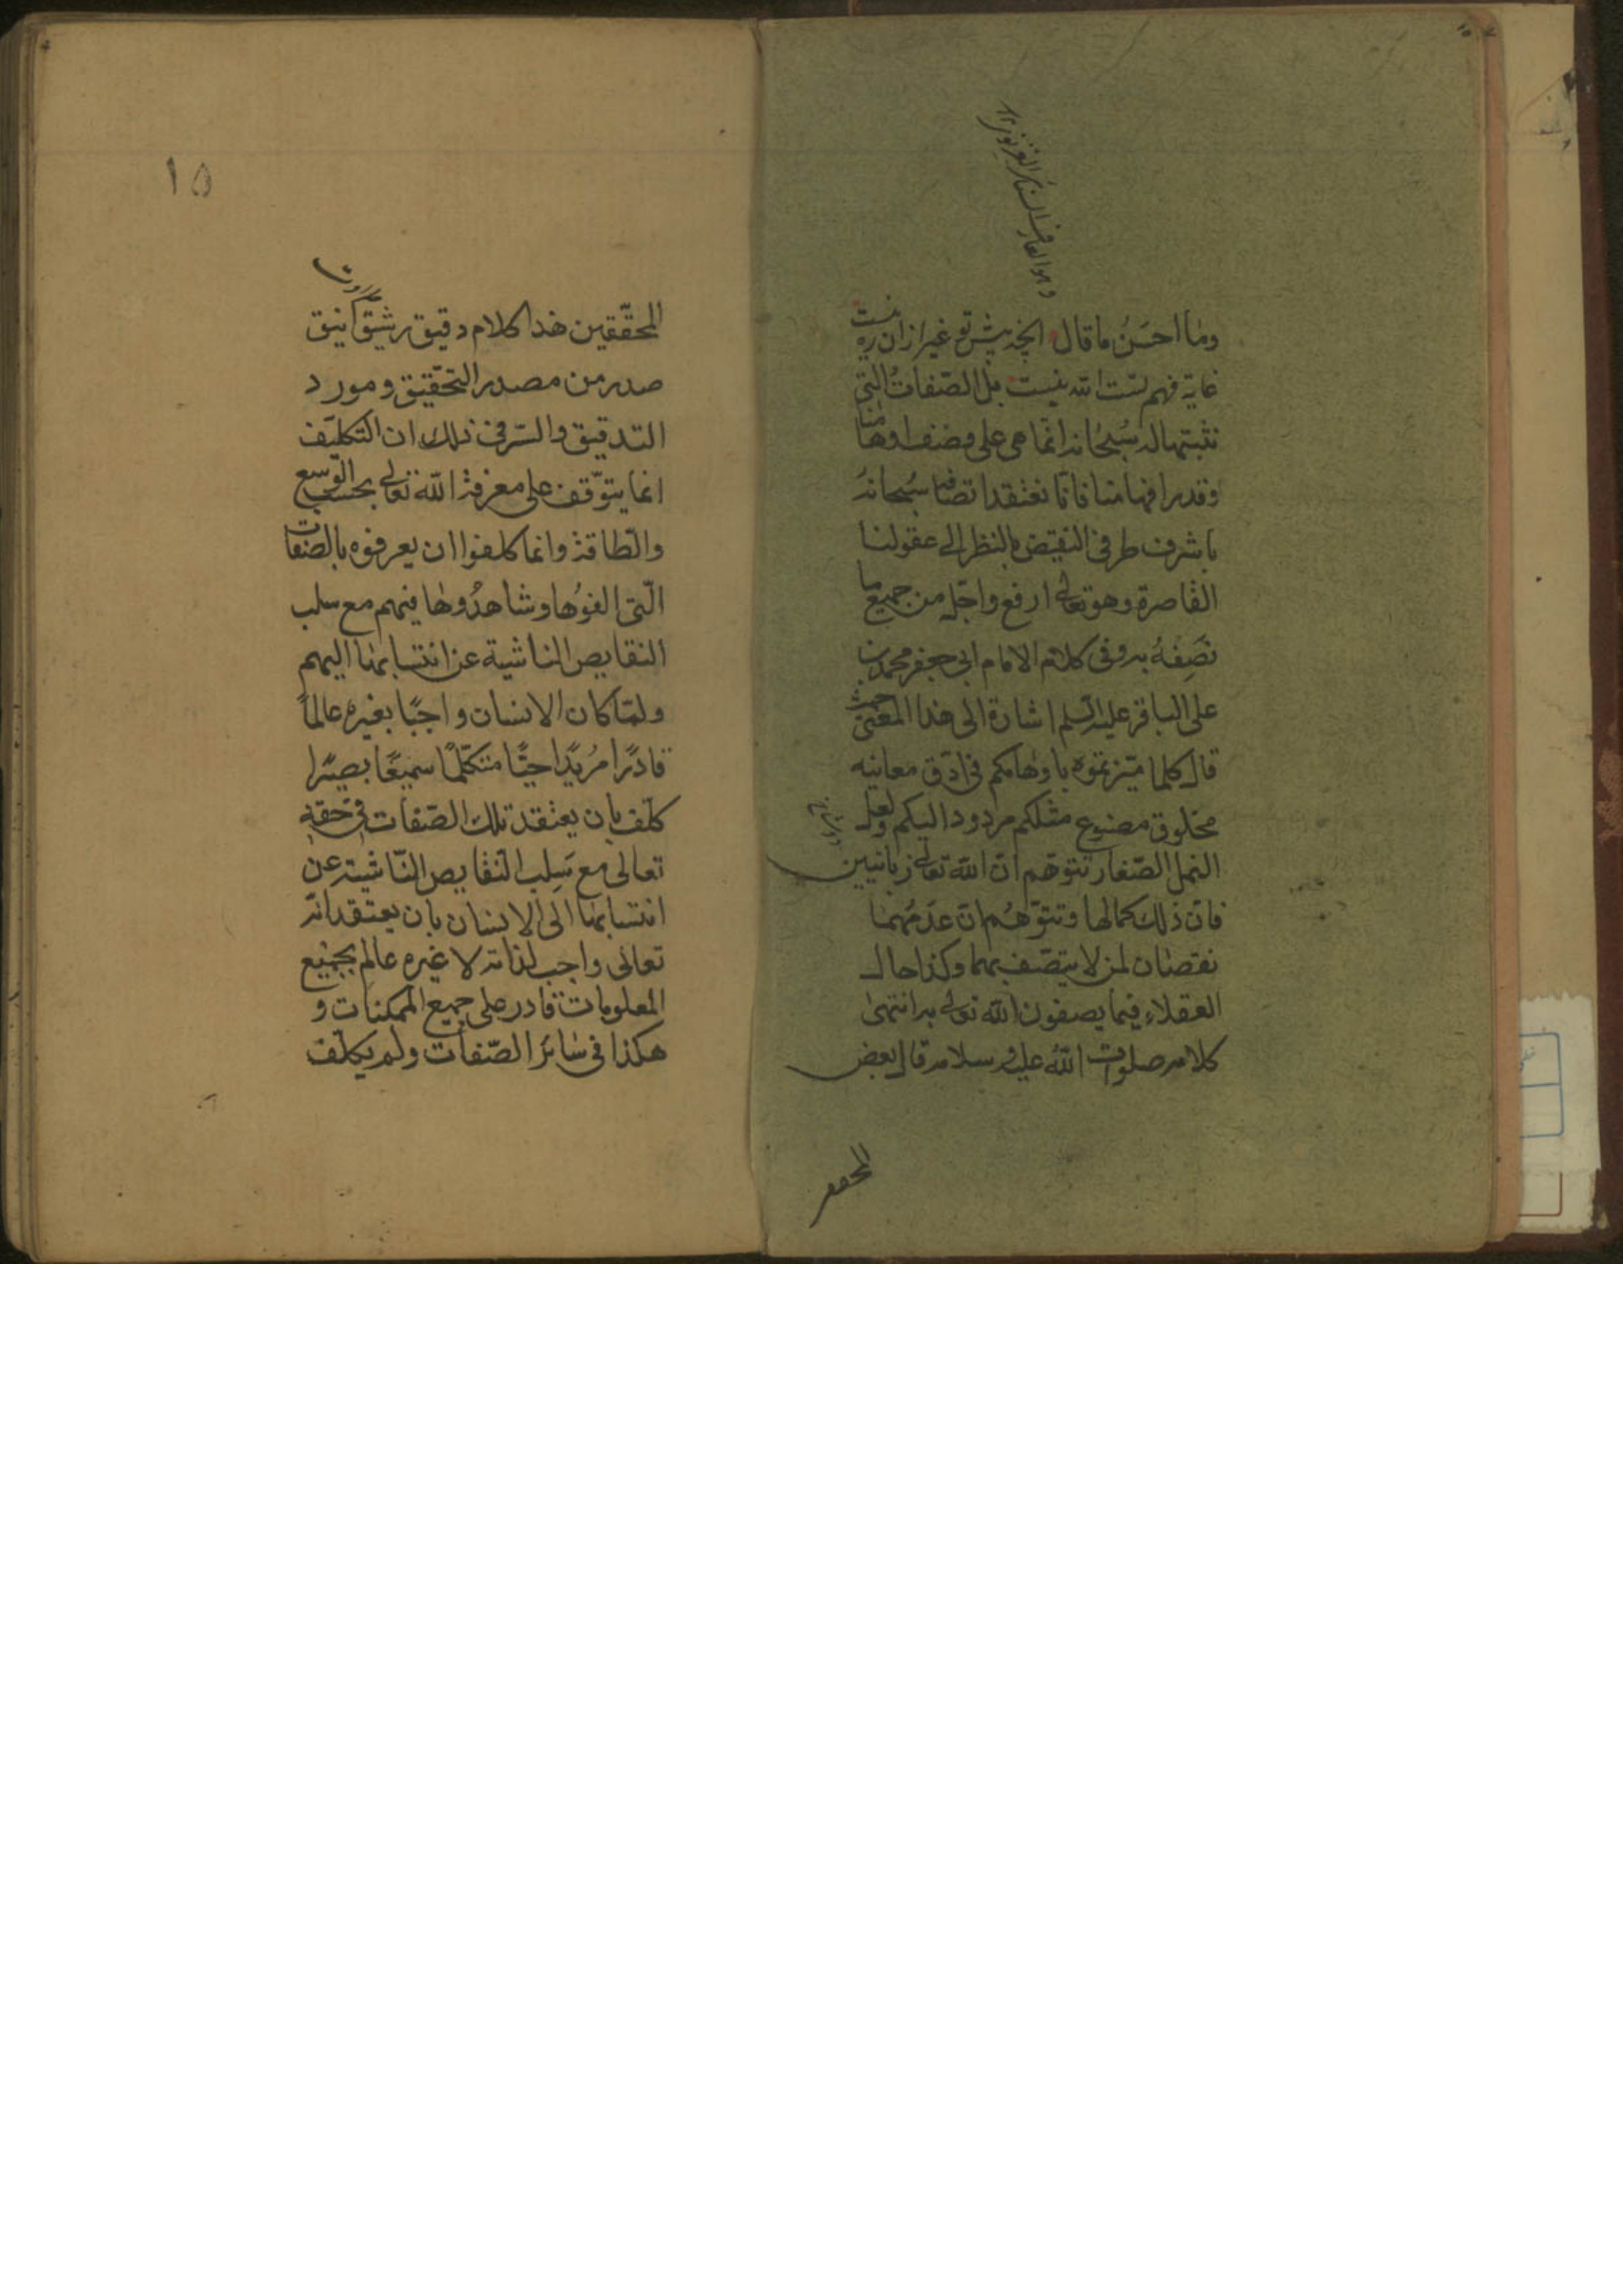 وما احسن ما قال انچه پیش تو غیر ازان ره نیست
غایة فهم تست الله نیست بل الصفات التی
نثبتها له سبحانه انما هی علی وفق اوهامنا
وقدر افهامنا فانا نعتقد اتصافه سبحانه
باشرف طرفی النقیض بالنظر الی عقولنا
القاصرة وهو تعالی ارفع واجل من جمیع ما
نصفه به وفی کلام الامام ابی جعفر محمد بن
علی الباقر علیه السلم اشارة الی هذا المعنی حیث
قال کلما میزتموه باوهامکم فی ادق معانیه
مخلوق مصنوع مثلکم مردود الیکم ولعل
النمل الصغار تتوهم ان الله تعالی زبانیین
فان ذلک کمالها وتتوهم ان عدمهما
نقصان لمن لا یتصف بهما وکذا حال
العقلاء فیما یصفون الله تعالی به انتهی
کلامه صلوات الله علیه وسلامه قال بعض
المحقق
١٥
المحققین هذا کلام دقیق رشیق انیق
صدر من مصدر التحقیق ومورد
التدقیق والسر فی ذلک ان التکلیف
انما یتوقف علی معرفة الله تعالی بحسب الوسع
والطاقة وانما کلفوا ان یعرفوه بالصفات
التی الفوها وشاهدوها فیهم مع سلب
النقایص الناشیة عن انتسابها الیهم
ولما کان الانسان واجبًا بغیره عالمًا
قادرًا مریدًا حیًا متکلمًا سمیعًا بصیرًا
کلف بان یعتقد تلک الصفات فی حقه
تعالی مع سلب النقایص الناشیة عن
انتسابها الی الانسان بان یعتقد انه
تعالی واجب لذاته لا غیره عالم بجمیع
المعلومات قادر علی جمیع الممکنات و
هکذا فی سائر الصفات ولم یکلف